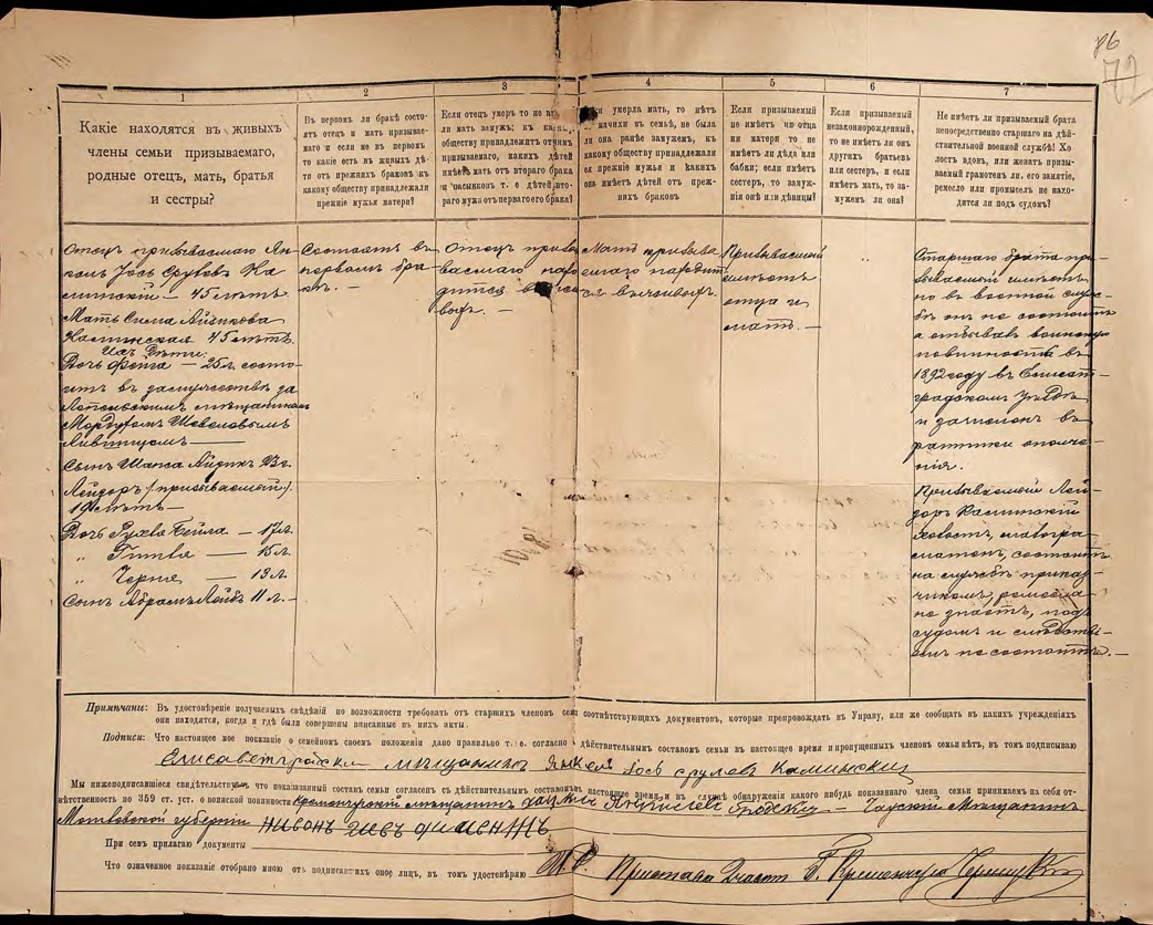 86
72
1
2
3
4
5
6
7
Какіе находятся въ живыхъ
члены семьи призываемаго,
родные отецъ, мать, братья
и сестры?
Въ первомъ ли бракѣ состо-
ятъ отецъ и мать призывае-
маго и если не въ первомъ
то какіе есть въ живыхъ дѣ-
ти отъ прежнихъ браковъ къ
какому обществу принадлежали
прежніе мужья матери?
Если отецъ умеръ то не
ли мать замужъ; къ
обществу принадлежитъ отчимъ
призываемаго, какихъ дѣтей
имѣетъ мать отъ втораго брака
и пасынковъ т. е дѣтей вто-
раго мужа отъ перваго его брака?
умерла мать, то нѣтъ
мачихи въ семьѣ, не была
ли она ранѣе замужемъ, къ
какому обществу принадлежали
ея прежніе мужья и какихъ
она имѣетъ дѣтей отъ преж-
нихъ браковъ
Если призываемый
не имѣетъ ни отца
ни матери то не
имѣетъ ли дѣда или
бабки; если имѣетъ
сестеръ, то замуж-
нія онѣ или дѣвицы?
Если призываемый
незаконнорожденный,
то не имѣетъ ли онъ
другихъ братьевъ
или сестеръ, и если
имѣетъ мать, то за-
мужемъ ли она?
Не имѣетъ ли призываемый брата
непосредственно старшаго на дѣй-
ствительной военной службѣ! Хо-
лостъ вдовъ, или женатъ призы-
ваемый грамотенъ ли, его занятіе,
ремесло или промыселъ не нахо-
дится ли подъ судомъ?
Отецъ призываемаго Ян-
кель Іось Срулевъ Ка
минскій — 45 лѣтъ.
Мать Сима Айзикова
Каминская 45 лѣтъ.
Ихъ дѣти:
Дочь Фейга — 25 л. состо-
итъ въ замужествѣ за
мѣщаниномъ
Мордухомъ Шевелевымъ
Сынъ Шапса Айзикъ
Лейдоръ (призываемый).
19 лѣтъ —
Дочь Рухля Бейла — 17 л.
„ Гитля — 15 л.
„ Черня — 13 л.
Сынъ Абрамъ Лейбъ 11 л. —
Состоятъ въ
первомъ бра-
кѣ. —
Отецъ призы
ваемаго нахо
дится въ жи
выхъ. —
Мать призыва
емаго находит
ся въ живыхъ.
Призываемый
имѣетъ
отца и
мать. —
„
Старшаго брата при-
зываемый имѣетъ
но въ военной служ-
бѣ онъ не состоитъ
а отбывалъ воинскую
повинность въ
1892 году въ Елисавет-
градскомъ уѣздѣ
и зачисленъ въ
ратники ополче-
нія.
Призываемый Лей-
доръ Каминскій
холостъ, малогра-
мотенъ, состоитъ
на службѣ приказ-
чикомъ, ремесла
не знаетъ, подъ
судомъ и слѣдстві-
емъ не состоитъ. —
Примѣчаніе: Въ удостовѣреніе получаемыхъ свѣдѣній по возможности требовать отъ старшихъ членовъ семьи соотвѣтствующихъ документовъ, которые препровождать въ Управу, или же сообщать въ какихъ учрежденіяхъ
они находятся, когда и гдѣ были совершены вписанные въ нихъ акты.
Подписи: Что настоящее мое показаніе о семейномъ своемъ положеніи дано правильно т. е. согласно дѣйствительнымъ составомъ семьи въ настоящее время и пропущенныхъ членовъ семьи нѣтъ, въ томъ подписываю
Елисаветградскій мещанинъ Янкель Іось Срулевъ Каминскій
Мы нижеподписавшіеся свидѣтельствуемъ, что показанный составъ семьи согласенъ съ дѣйствительнымъ составомъ въ настоящее время и въ случаѣ обнаруженія какого нибудь показаннаго члена семьи принимаемъ на себя от-
вѣтственность по 359 ст. уст. о воинской повинности Кременчугскій мѣщанинъ Бродскій — Чаускій Мещанинъ
Могилевской губерніи
При семъ прилагаю документы
Что означенное показаніе отобрано мною отъ подписавшихъ оное лицъ, въ томъ удостовѣряю Приставъ 2 части Г. Кременчуга